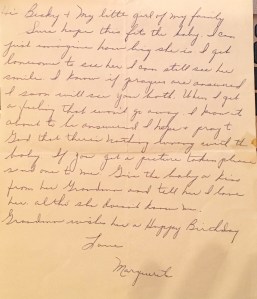 Becky & My little girl of my family
Sure hope this fits the baby. I can
just imagine how big she is I get
lonesome to see her I can still see her
smile I know if prayers are answered
I soon will see you both. When I get
a feeling that won't go away I know it
about to be answered I hope & pray to
God that there's nothing wrong with the
baby If you get a picture taken please
send one to me. Give the baby a kiss
from her Grandma and tell her I love
her altho she doesn't know me.
Grandma wishes her a Happy Birthday
Love
Marguerite